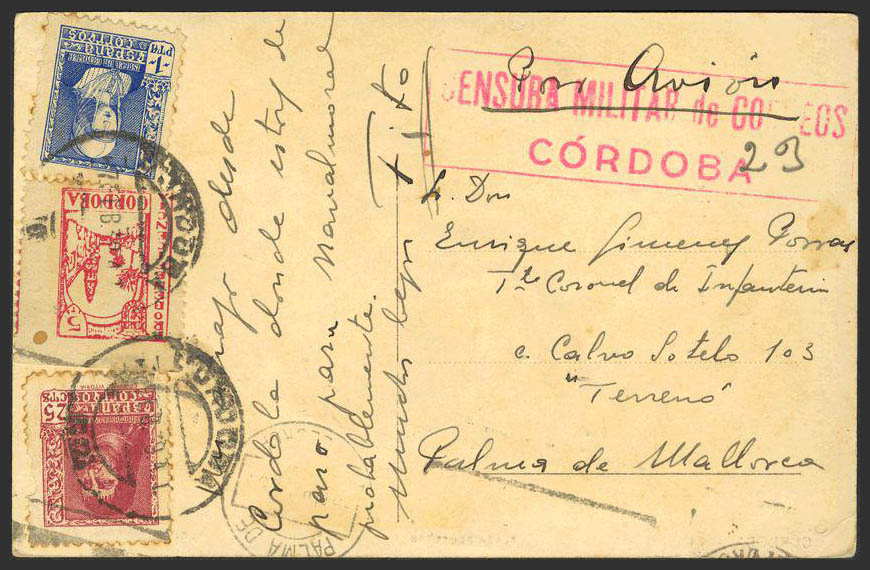 Por Avión
CENSURA MILITAR de CORREOS
CÓRDOBA
23
Sr. Don
Enrique Gimenez Porras
Tte Coronel de Infanteria
c. Calvo Sotelo 103
"Terreno"
Palma de Mallorca
desde
Cordoba donde estoy de
paso para Navalmoral
probablemente.
Muchos besos
Tito
1 PTA
España
CORREOS
ISABEL LA CATOLICA
CORDOBA
5
25
CTS
España
CORREOS
PALMA DE